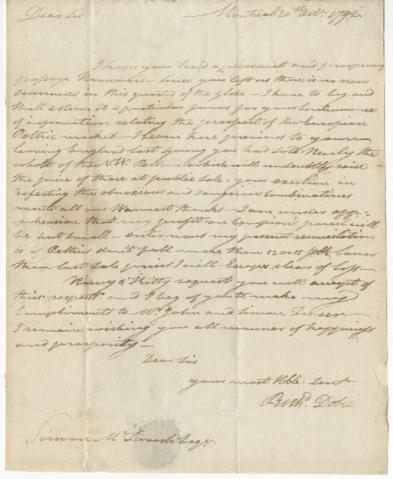 Dear Sir Montreal 20th Octr. 1792
I hope you had a pleasant and prosperous
passage Homeward since you left us there is no new
in this quarter of the Globe I have to beg and
shall esteem it a particular favor for your continuance
of information relating the prospect of the European
Peltrie market I learn here previous to your
leaving England last spring you had sold Nearly the
whole of the NW Peltries which will undoubtedly raise
the price of those at public sale, your exertion in
defeating the obnoxious and dangerous Combinations
merits all our Warmest thanks I am under app-
rehension that my profit on European goods will
be but small my present consolation
is if Peltries don't fall more than 12 or 15 lower
than last sale prices I will Escape clear of loss
Nancy & Kitty request you will accept of
their respects and I beg of you to make my
Compliments to Mr. John and Simon Fraser
I remain wishing you all manner of happiness
and prosperity
Dear Sir
your most Hble. Servt.
Richd. Dobie
Simon McTavish Esqr.